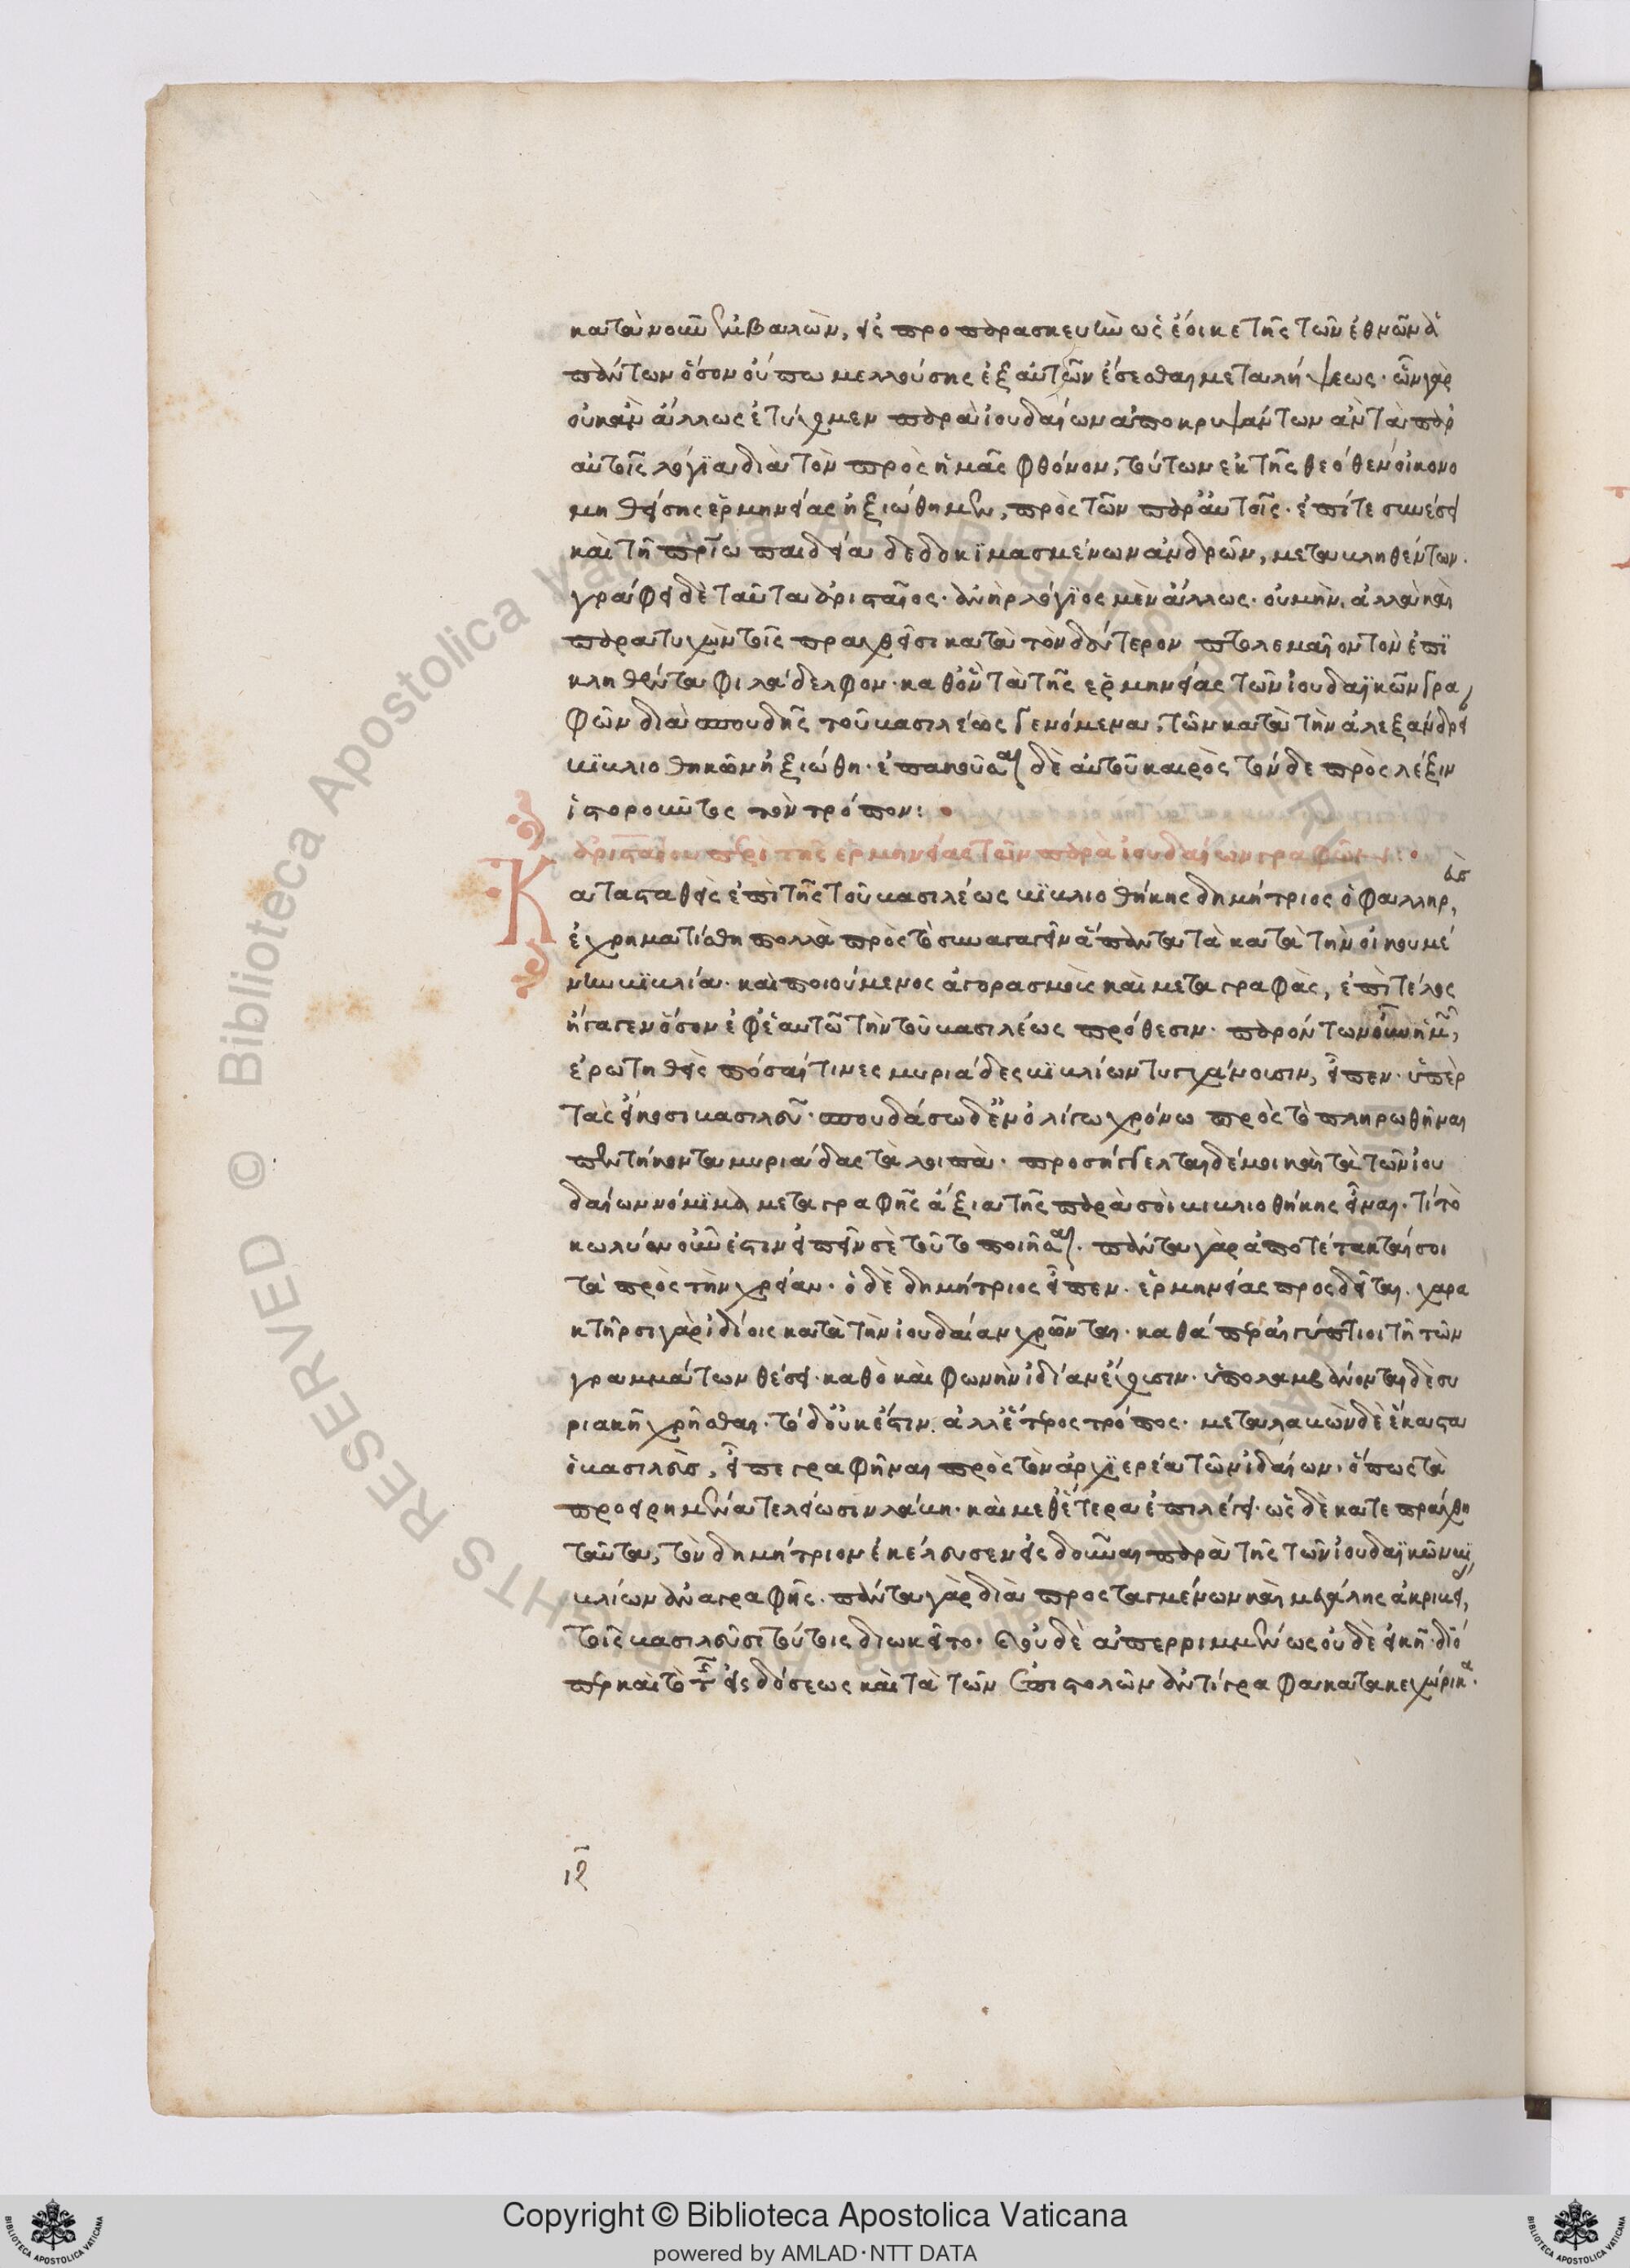 κατὰ νοῦν ἐμβαλὼν, εἰς προπαρασκευὴν ὡς ἔοικε τῆς τῶν ἐθνῶν ἁ
πάντων ὅσον οὔπω μελλούσης ἐξ αὐτῶν ἔσεσθαι μεταλήψεως. ὧν γὰρ
οὐκ ἂν ἄλλως ἐτύχομεν παρὰ ἰουδαίων ἀποκρυψάντων ἂν τὰ παρ
αὐτοῖς λόγϊα διὰ τὸν πρὸς ἡμᾶς φθόνον, τούτων ἐκ τῆς θεόθεν οἰκονο
μηθείσης ἑρμηνείας ἠξιώθημεν, πρὸς τῶν παρ' αὐτοῖς. ἐπί τε συνέσει
καὶ τῇ πατρίω παιδεία δεδοκϊμασμένων ἀνδρῶν, μετακληθέντων.
γράφει δὲ ταῦτα ἀρισταῖος. ἀνὴρ λόγϊος μὲν ἄλλως. οὐ μὴν ἀλλὰ καὶ
παρατυχὼν τοῖς πραχθεῖσι κατὰ τὸν δεύτερον πτολεμαῖον τὸν ἐπϊ
κληθέντα φιλάδελφον. καθ' ὃν τὰ τῆς ἑρμηνείας τῶν ἰουδαϊκῶν γρα
φῶν διὰ σπουδῆς τοῦ βασιλέως γενόμενα, τῶν κατὰ τὴν ἀλεξάνδρει
βϊβλιοθηκῶν ἠξιώθη. ἐπακοῦσαι δὲ αὐτοῦ καιρὸς τόνδε πρὸς λέξιν
ἱστοροῦντος τὸν τρόπον:
ἀρισταίου περὶ τῆς ἑρμηνείας τῶν παρὰ ἰουδαίων γραφῶν:
Κατασταθεὶς ἐπὶ τῆς τοῦ βασιλέως βϊβλιοθήκης δημήτριος ὁ φαληρεὺς
ἐχρηματίσθη πολλὰ πρὸς τὸ συναγαγεῖν ἅπαντα τὰ κατὰ τὴν οἰκουμέ
νην βϊβλία. καὶ ποιούμενος ἀγορασμοὺς καὶ μεταγραφὰς, ἐπὶ τέλος
ἤγαγεν ὅσον ἐφ' ἑαυτῶ τὴν τοῦ βασιλέως πρόθεσιν. παρόντων οὖν ἡμῶν
ἐρωτηθεὶς πόσαι τινες μυριάδες βϊβλίων τυγχάνουσιν, εἶπεν. ὑπὲρ
τὰς εἴκοσι βασιλεῦ. σπουδάσω δ' ἐν ὀλίγω χρόνω πρὸς τὸ πληρωθῆναι
πεντήκοντα μυριάδας τὰ λοιπά. προσήγγελται δέ μοι καὶ τὰ τῶν ἰου
δαίων νόμϊμα μεταγραφῆς ἄξια τῆς παρὰ σοὶ βιβλιοθήκης εἶναι. τί τὸ
κωλύον οὖν ἐστιν εἰπεῖν σὲ τοῦτο ποιῆσαι. πάντα γὰρ ἀποτέτακταί σοι
τὰ πρὸς τὴν χρείαν. ὁ δὲ δημήτριος εἶπεν. ἑρμηνείας προσδεῖται. χαρα
κτῆρσι γὰρ ἰδίοις κατὰ τὴν ἰουδαίαν χρῶνται. καθάπερ αἰγύπτιοι τῇ τῶν
γραμμάτων θέσει. καθὸ καὶ φωνὴν ἰδίαν ἔχουσιν. ὑπολαμβάνονται δὲ συ
ριακῇ χρῆσθαι. τὸ δ' οὐκ ἔστιν. ἀλλ' ἕτερος τρόπος. μεταλαβὼν δὲ ἕκαστα
ὁ βασιλεὺς, εἶπε γραφῆναι πρὸς τὸν ἀρχϊερέα τῶν ἰδαίων. ὅπως τὰ
προειρημένα τελείωσιν λάβη. καὶ μεθ' ἕτερα ἐπιλέγει. ὡς δὲ κατεπράχθη
ταῦτα, τὸν δημήτριον ἐκέλευσεν εἰσδοῦναι παρὰ τῆς τῶν ἰουδαϊκῶν βϊ
βλίων ἀναγραφῆς. πάντα γὰρ διὰ προστεταγμένων καὶ μεγάλης ἀκριβεί,
τοῖς βασιλεῦσι τούτοις διωκεῖτο. οὐδὲ ἀπερριμμένως οὐδὲ εἰκῇ. διό
περ καὶ τὸ τῆς εἰσδόσεως καὶ τὰ τῶν ἐπιστολῶν ἀντίγραφα κατακεχώρικα.